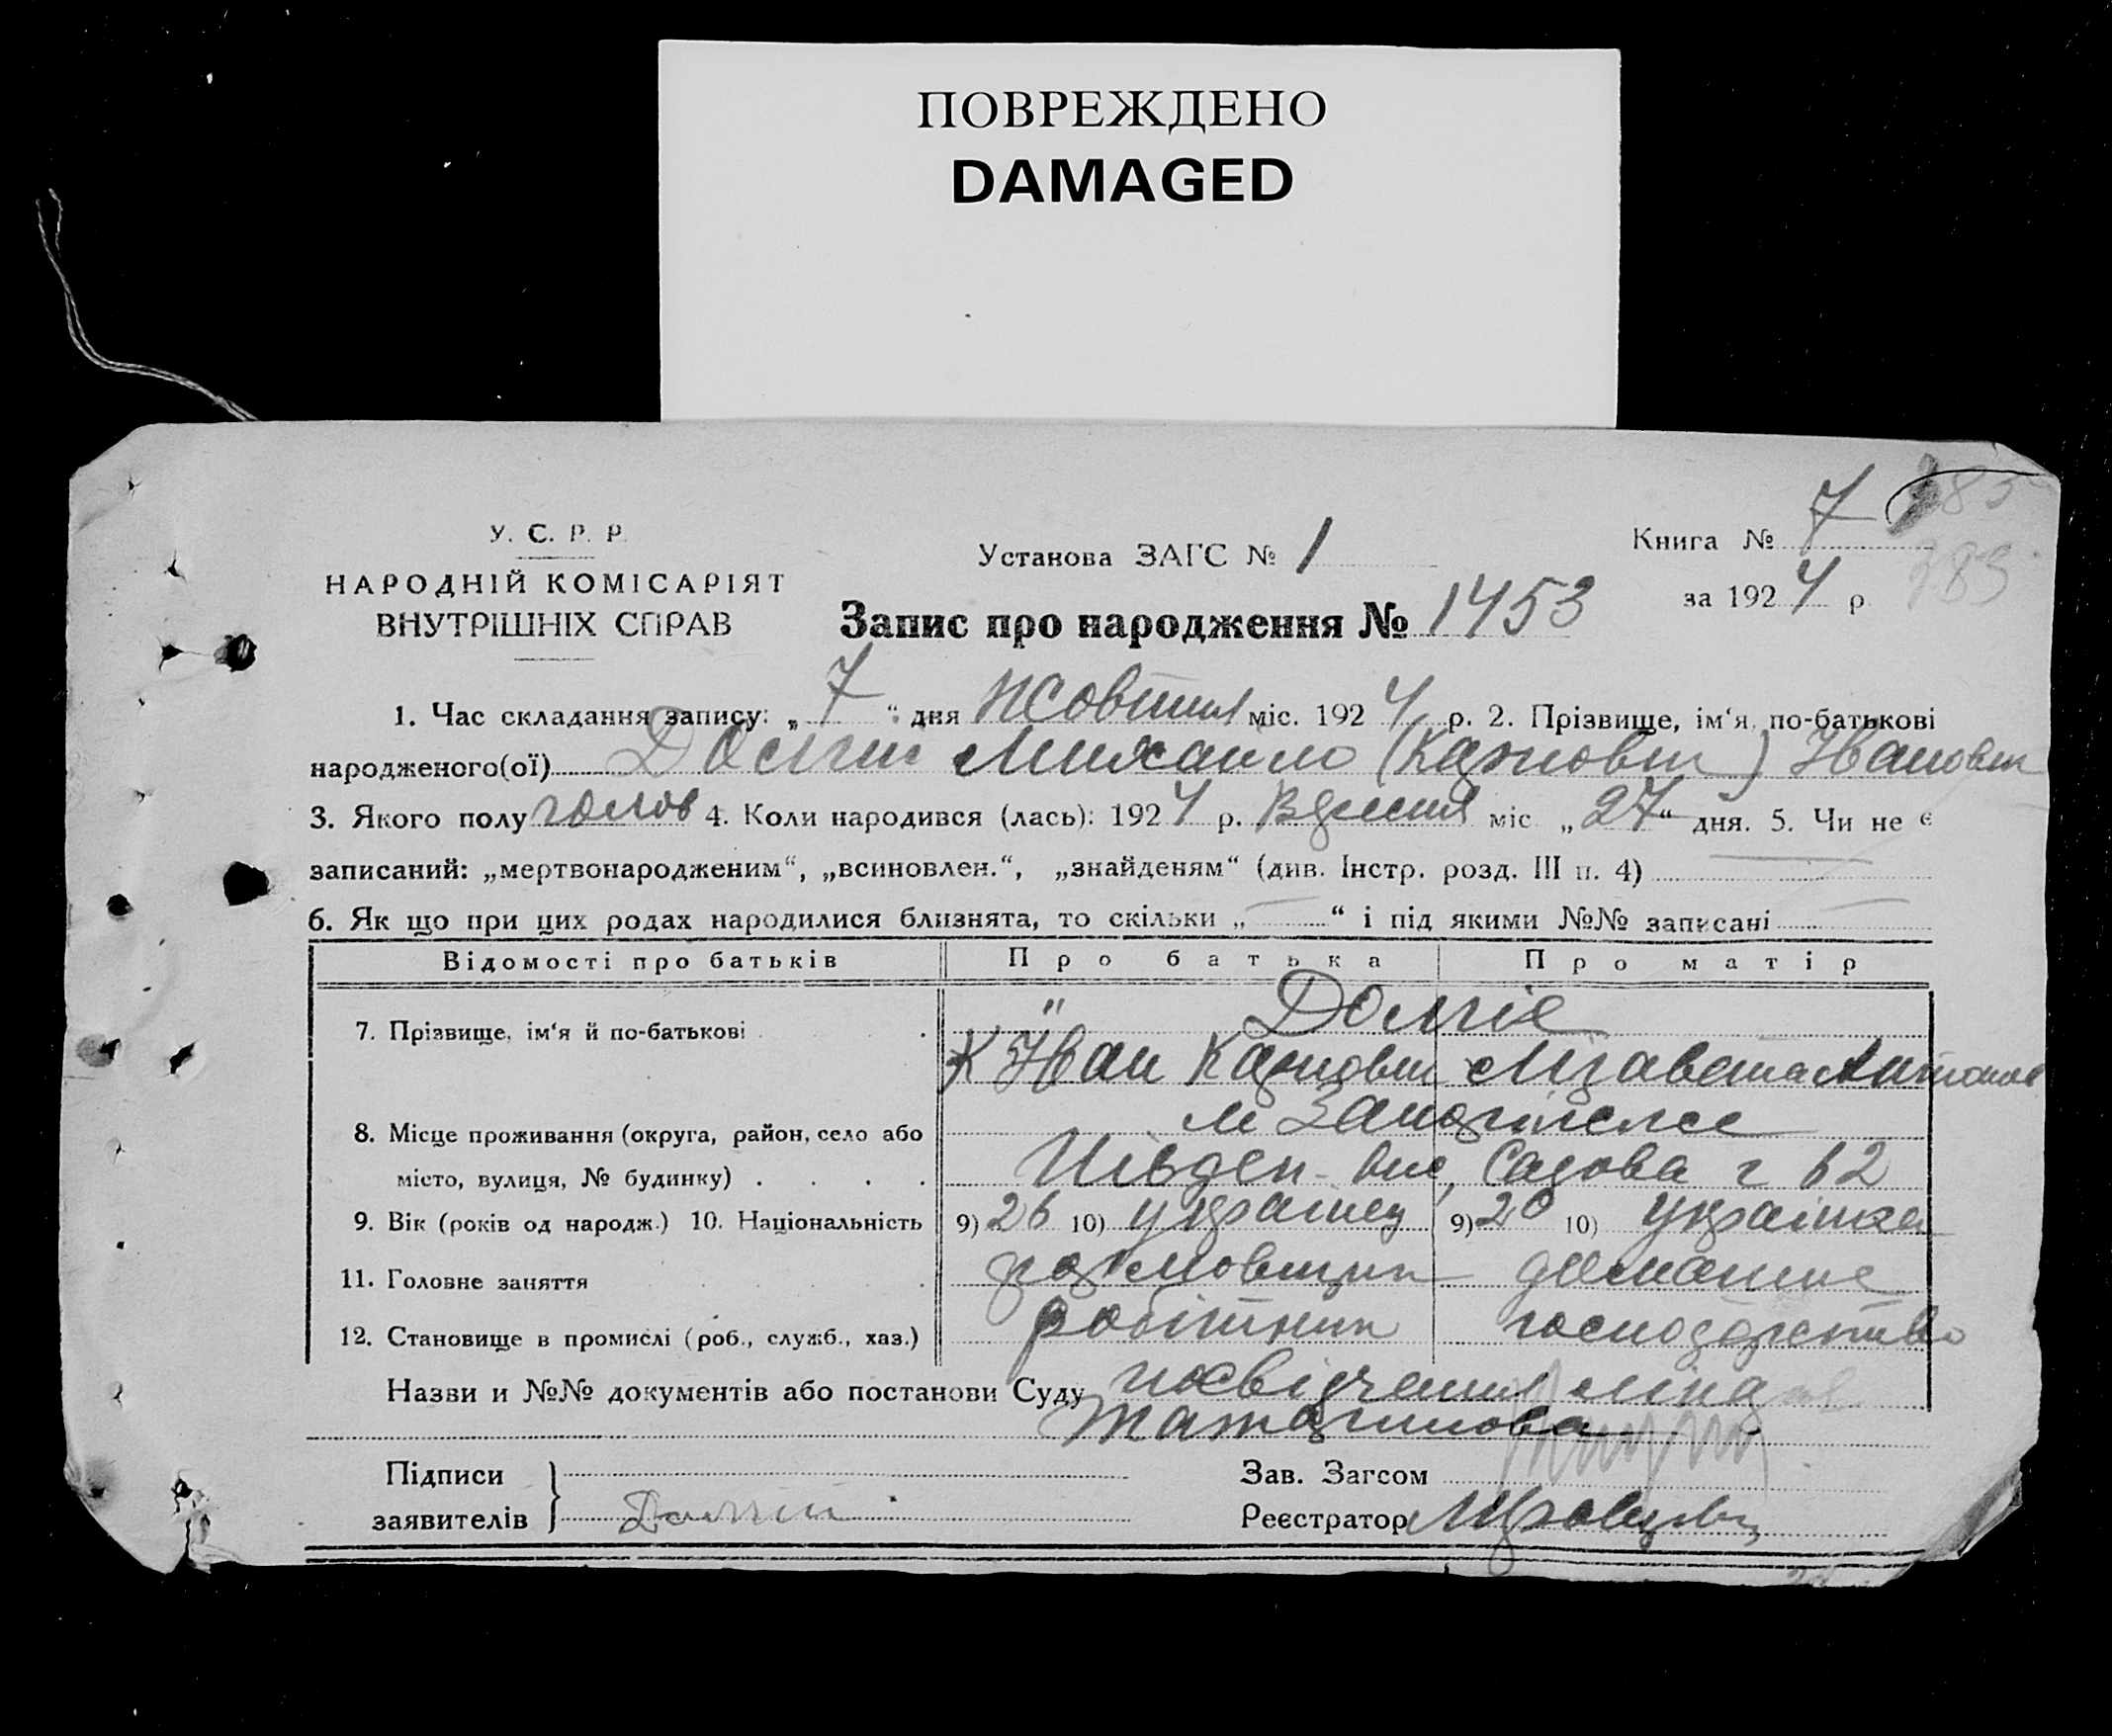 ПОВРЕЖДЕНО
DAMAGED
У. С. Р. Р.
НАРОДНІЙ КОМІСАРІЯТ
ВНУТРІШНІХ СПРАВ
Установа ЗАГС № 1
Книга № 7
за 1924 р.
383
Запис про народження № 1453
1. Час складання запису: „7“ дня Жовтня міс. 1924 р. 2. Прізвище, ім‘я, по-батькові
народженого(ої) Михайло ( ) Іванович
3. Якого полу чолов 4. Коли народився (лась): 1924 р. Вересня міс. „27“ дня. 5. Чи не є
записаний: „мертвонародженим“, „всиновлен.“, „знайденям“ (див. Інстр. розд. III п. 4)
6. Як що при цих родах народилися близнята, то скільки „—“ і під якими №№ записані
Відомості про батьків Про батька Про матір
7. Прізвище, ім‘я й по-батькові
Іван Карпович Лізавета Антонов
8. Місце проживання (округа, район, село або м Запоріжжє
місто, вулиця, № будинку) Півден. вис, Садова 2 62
9. Вік (років од народж.) 10. Національність 9) 26 10) українец 9) 20 10) українка
11. Головне заняття домашнє
12. Становище в промислі (роб., служб., хаз.) робітник господарство
Назви и №№ документів або постанови Суду посвідчення
Підписи
заявителів
Зав. Загсом
Реєстратор